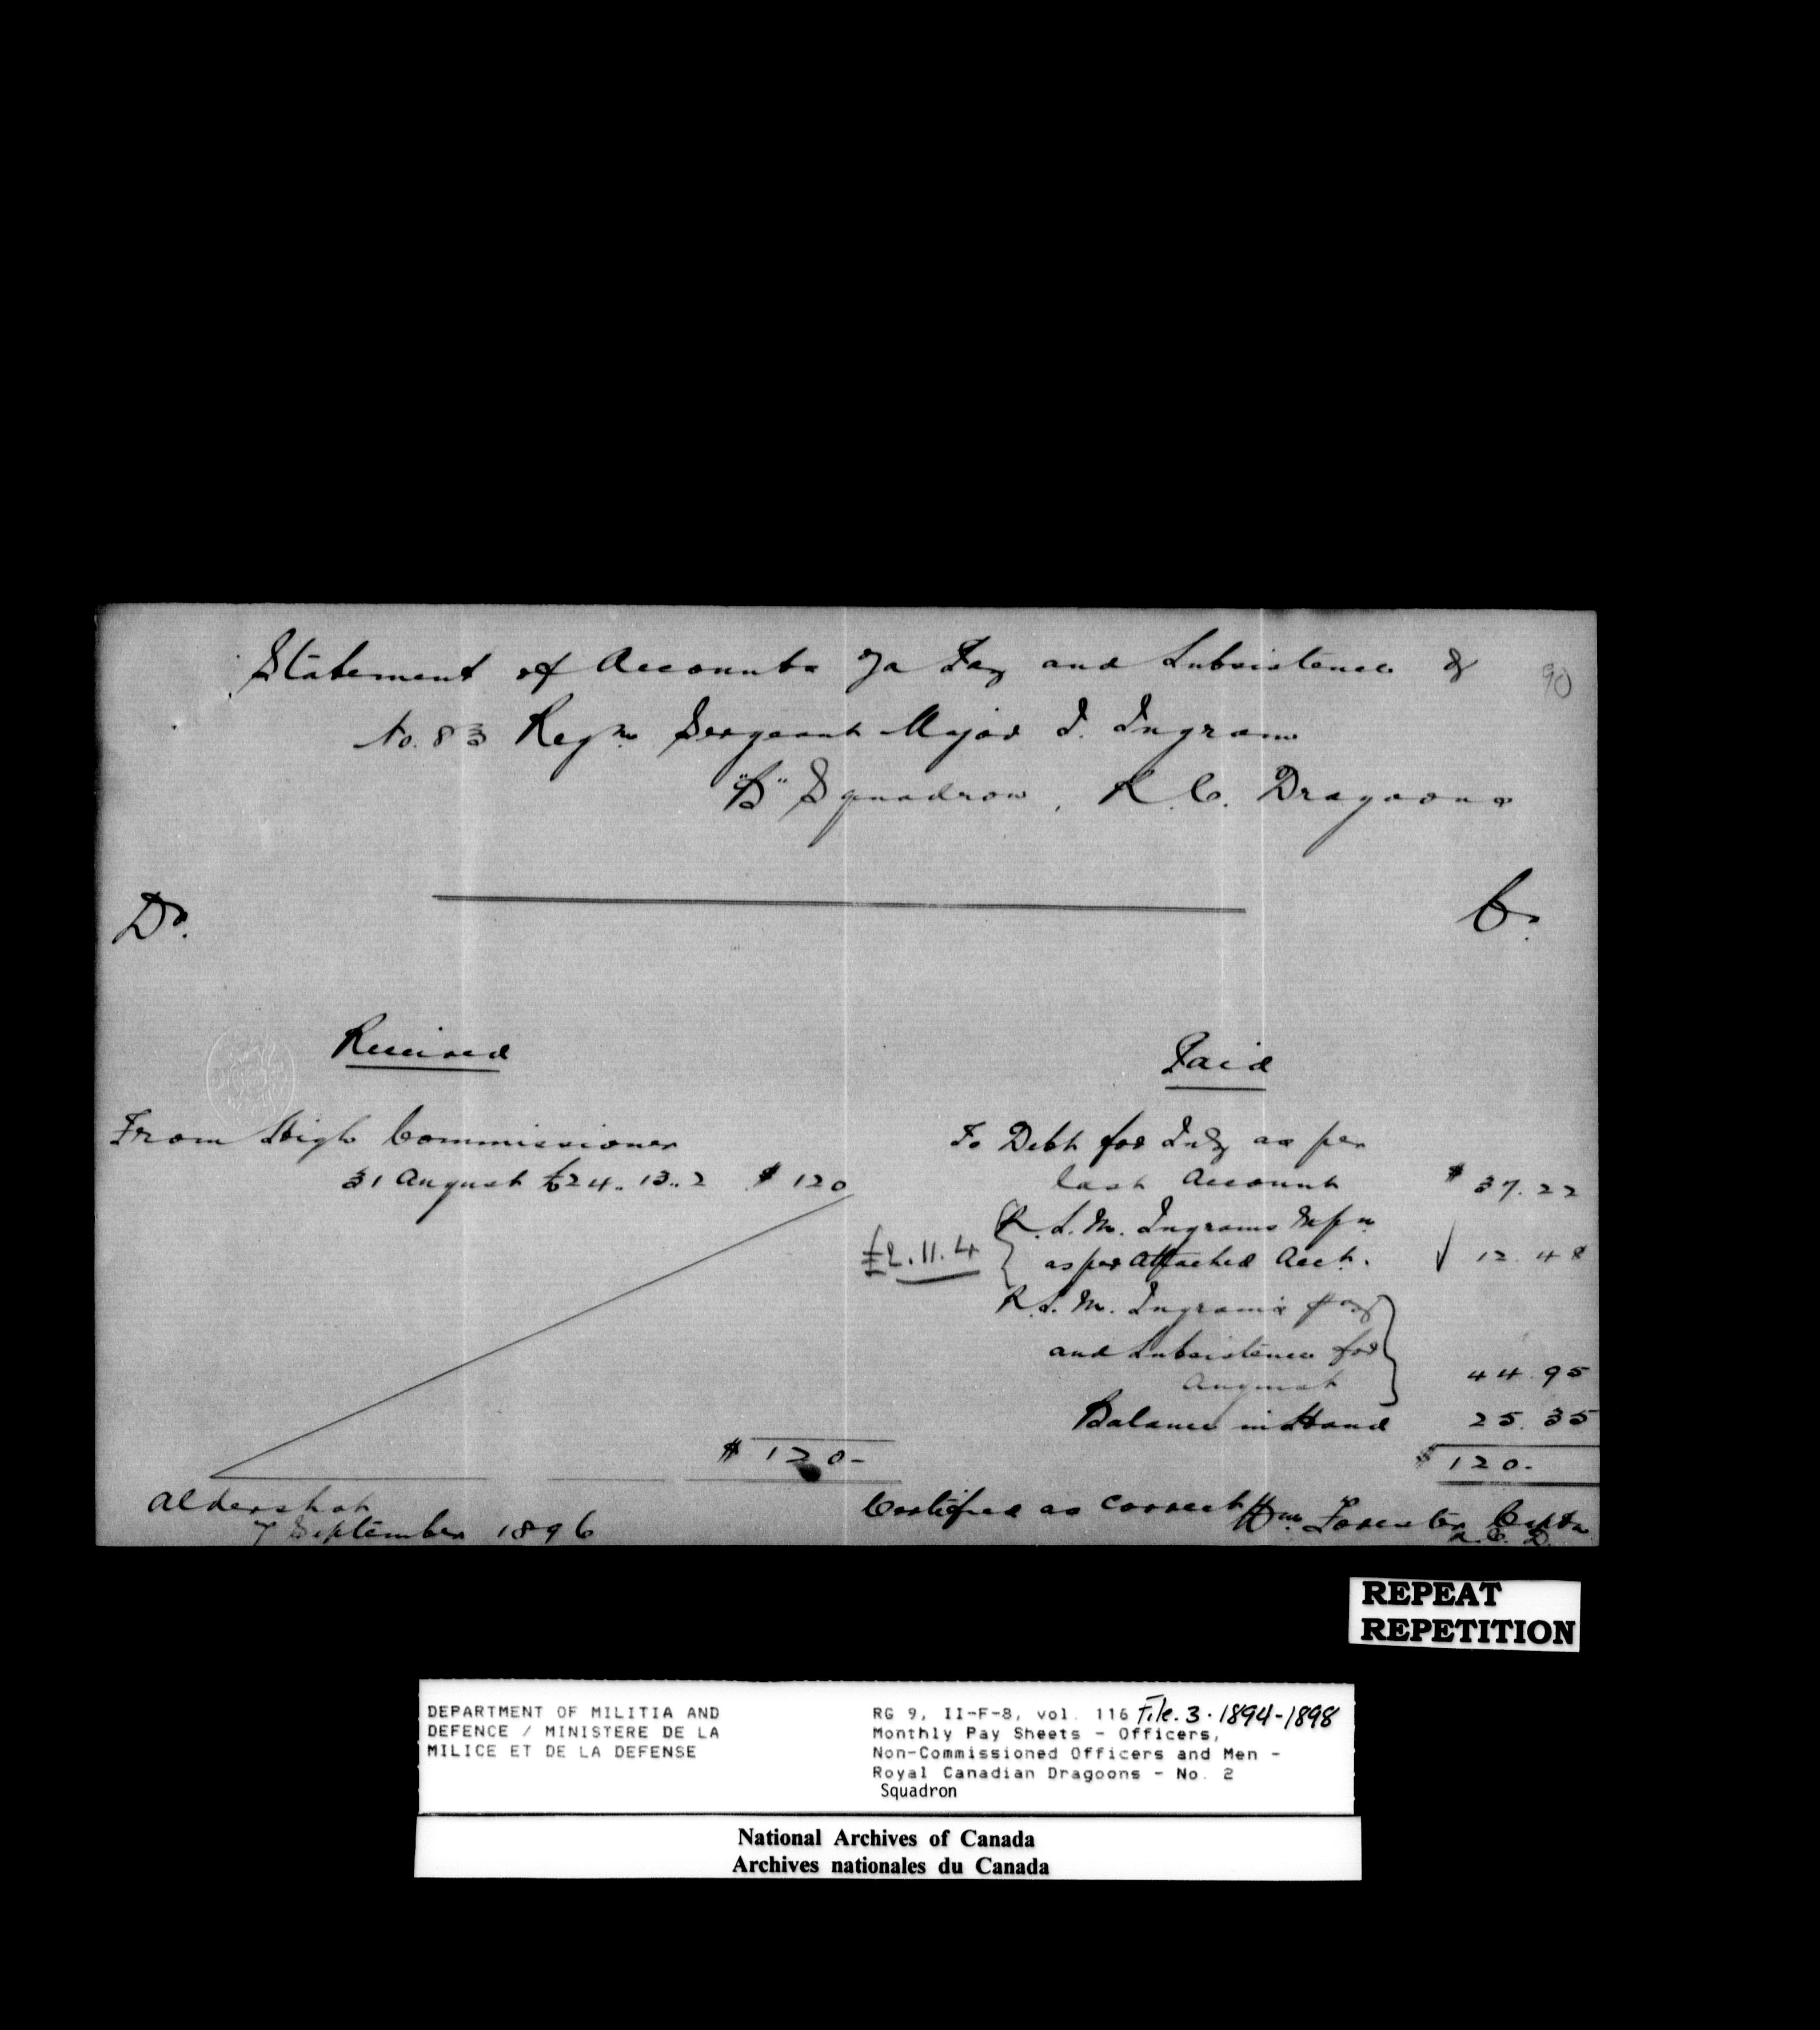 Statement of Accounts for Pay and Subsistence of
90
No. 83 Regtl Sergeant Major J. Ingram
"B" Squadron, R. C. Dragoons
Dr.
Cr.
Received
Paid
From High Commissioner
31 August £24..13..2 $ 120
To Debt for July as per
last Account $ 37.22
R.S.M. Ingrams
£2.11.4 as per Attached Acct. √ 12.48
R.S.M. Ingrams pay
and Subsistence for
August 44.95
Balance in Hand 25.35
$ 120-
$ 120-
Aldershot
7 September 1896
Certified as Correct Wm Forester Captn
R.C.D.
REPEAT
REPETITION
DEPARTMENT OF MILITIA AND
DEFENCE / MINISTERE DE LA
MILICE ET DE LA DEFENSE
RG 9, II-F-8, vol. 116 File. 3. 1894-1898
Monthly Pay Sheets - Officers,
Non-Commissioned Officers and Men -
Royal Canadian Dragoons - No. 2
Squadron
National Archives of Canada
Archives nationales du Canada